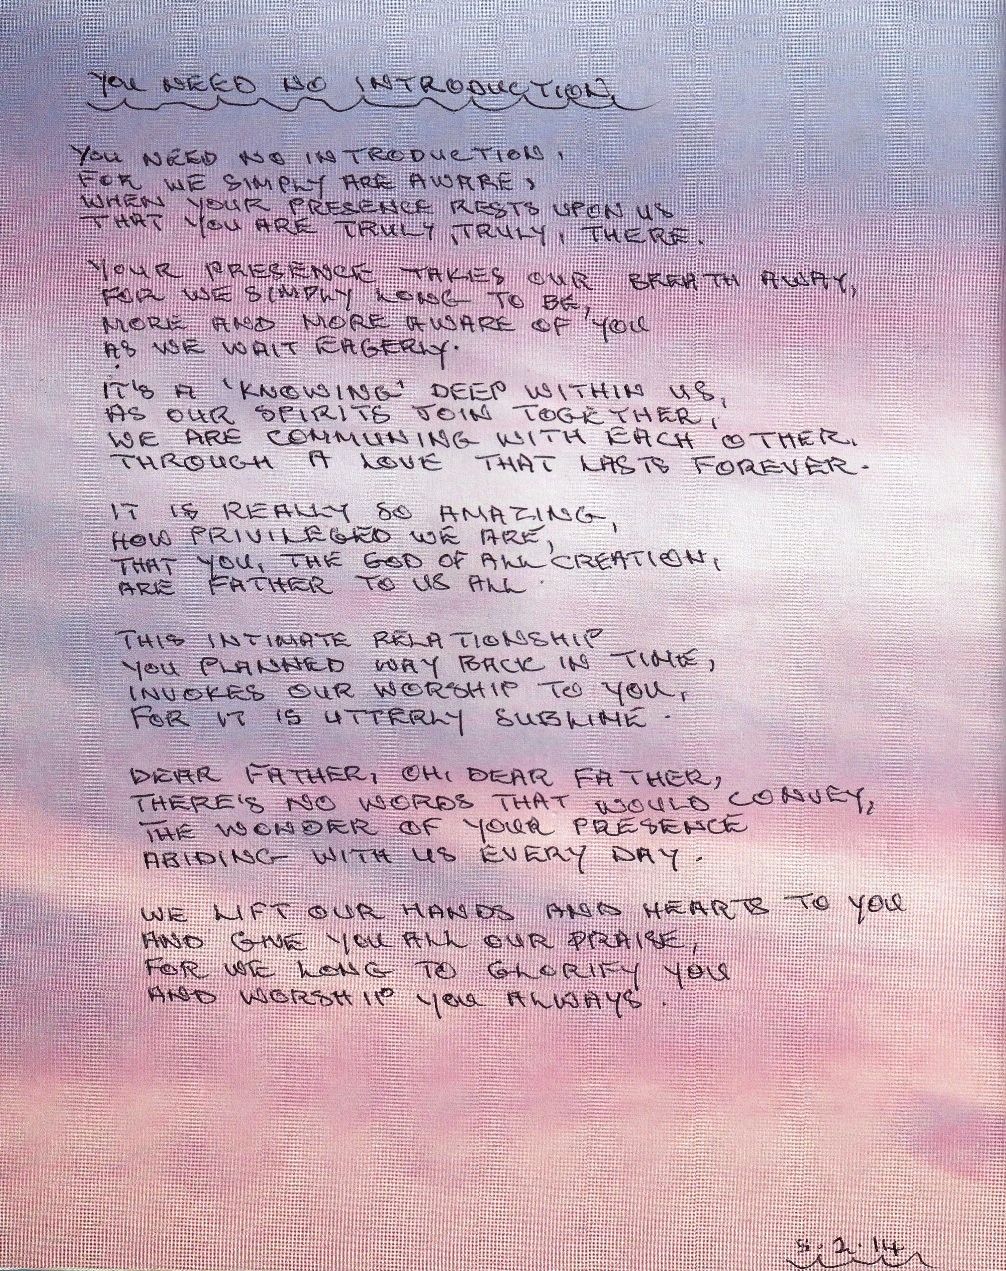 YOU NEED NO INTRODUCTION
YOU NEED NO INTRODUCTION,
FOR WE SIMPLY ARE AWARE,
WHEN YOUR PRESENCE RESTS UPON US
THAT YOU ARE TRULY, TRULY, THERE.
YOUR PRESENCE TAKES OUR BREATH AWAY,
FOR WE SIMPLY LONG TO BE,
MORE AND MORE AWARE OF YOU
AS WE WAIT EAGERLY.
IT'S A 'KNOWING' DEEP WITHIN US,
AS OUR SPIRITS JOIN TOGETHER,
WE ARE COMMUNING WITH EACH OTHER,
THROUGH A LOVE THAT LASTS FOREVER.
IT IS REALLY SO AMAZING,
HOW PRIVILEGED WE ARE,
THAT YOU, THE GOD OF ALL CREATION,
ARE FATHER TO US ALL.
THIS INTIMATE RELATIONSHIP
YOU PLANNED WAY BACK IN TIME,
INVOKES OUR WORSHIP TO YOU,
FOR IT IS UTTERLY SUBLIME.
DEAR FATHER, OH, DEAR FATHER,
THERE'S NO WORDS THAT WOULD CONVEY,
THE WONDER OF YOUR PRESENCE
ABIDING WITH US EVERY DAY.
WE LIFT OUR HANDS AND HEARTS TO YOU
AND GIVE YOU ALL OUR PRAISE,
FOR WE LONG TO GLORIFY YOU
AND WORSHIP YOU ALWAYS.
5.2.14